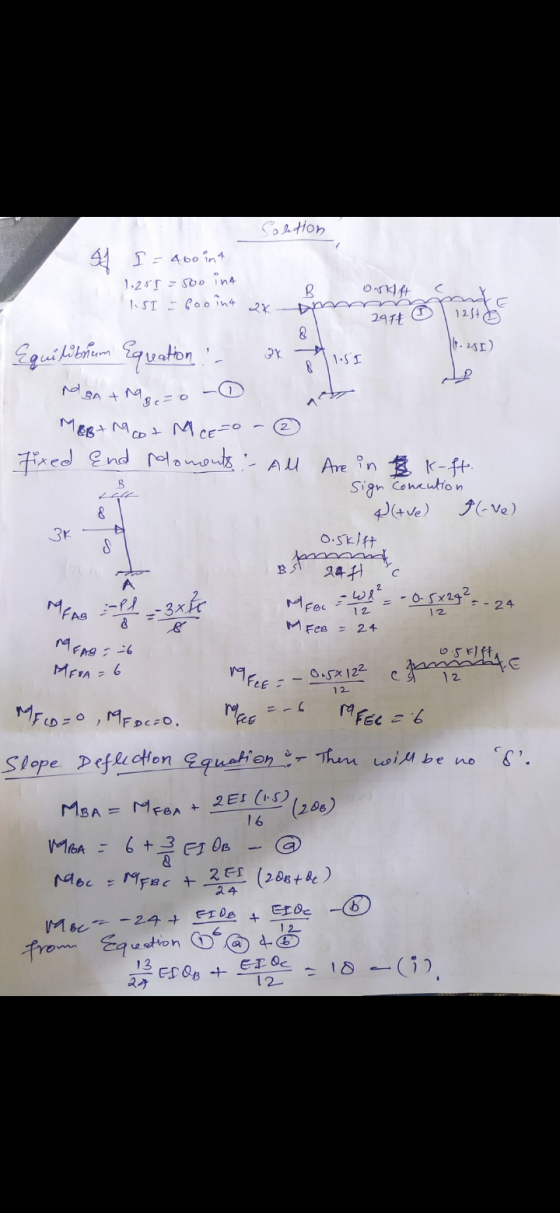 Solution
I = 400 in⁴
1.25I = 500 in⁴
1.5I = 600 in⁴
B 0.5K/ft C
2K 24ft (I) 12ft (I) E
8
3K 1.5I (1.25I)
8
A D
Equilibrium Equation :-
M_BA + M_BC = 0 - ①
M_CB + M_CD + M_CE = 0 - ②
Fixed End Moments :- All Are in K-ft.
Sign Convention
↲(+ve) ↱(-ve)
B
8
3K
8
A
0.5K/ft
B 24 ft C
M_FAB = -Pl/8 = -3×16/8
M_FAB = -6
M_FBA = 6
M_FBC = -wl²/12 = -0.5×24²/12 = -24
M_FCB = 24
M_FCE = -0.5×12²/12
C 0.5K/ft E
12
M_FCD = 0, M_FDC = 0.
M_FCE = -6 M_FEC = 6
Slope Deflection Equation :- There will be no 'δ'.
M_BA = M_FBA + 2EI(1.5)/16 (2θ_B)
M_BA = 6 + 3/8 EIθ_B - ⓐ
M_BC = M_FBC + 2EI/24 (2θ_B+θ_C)
M_BC = -24 + EIθ_B/6 + EIθ_C/12 - ⓑ
from Equation ① ⓐ & ⓑ
13/24 EIθ_B + EIθ_C/12 = 18 - (i).